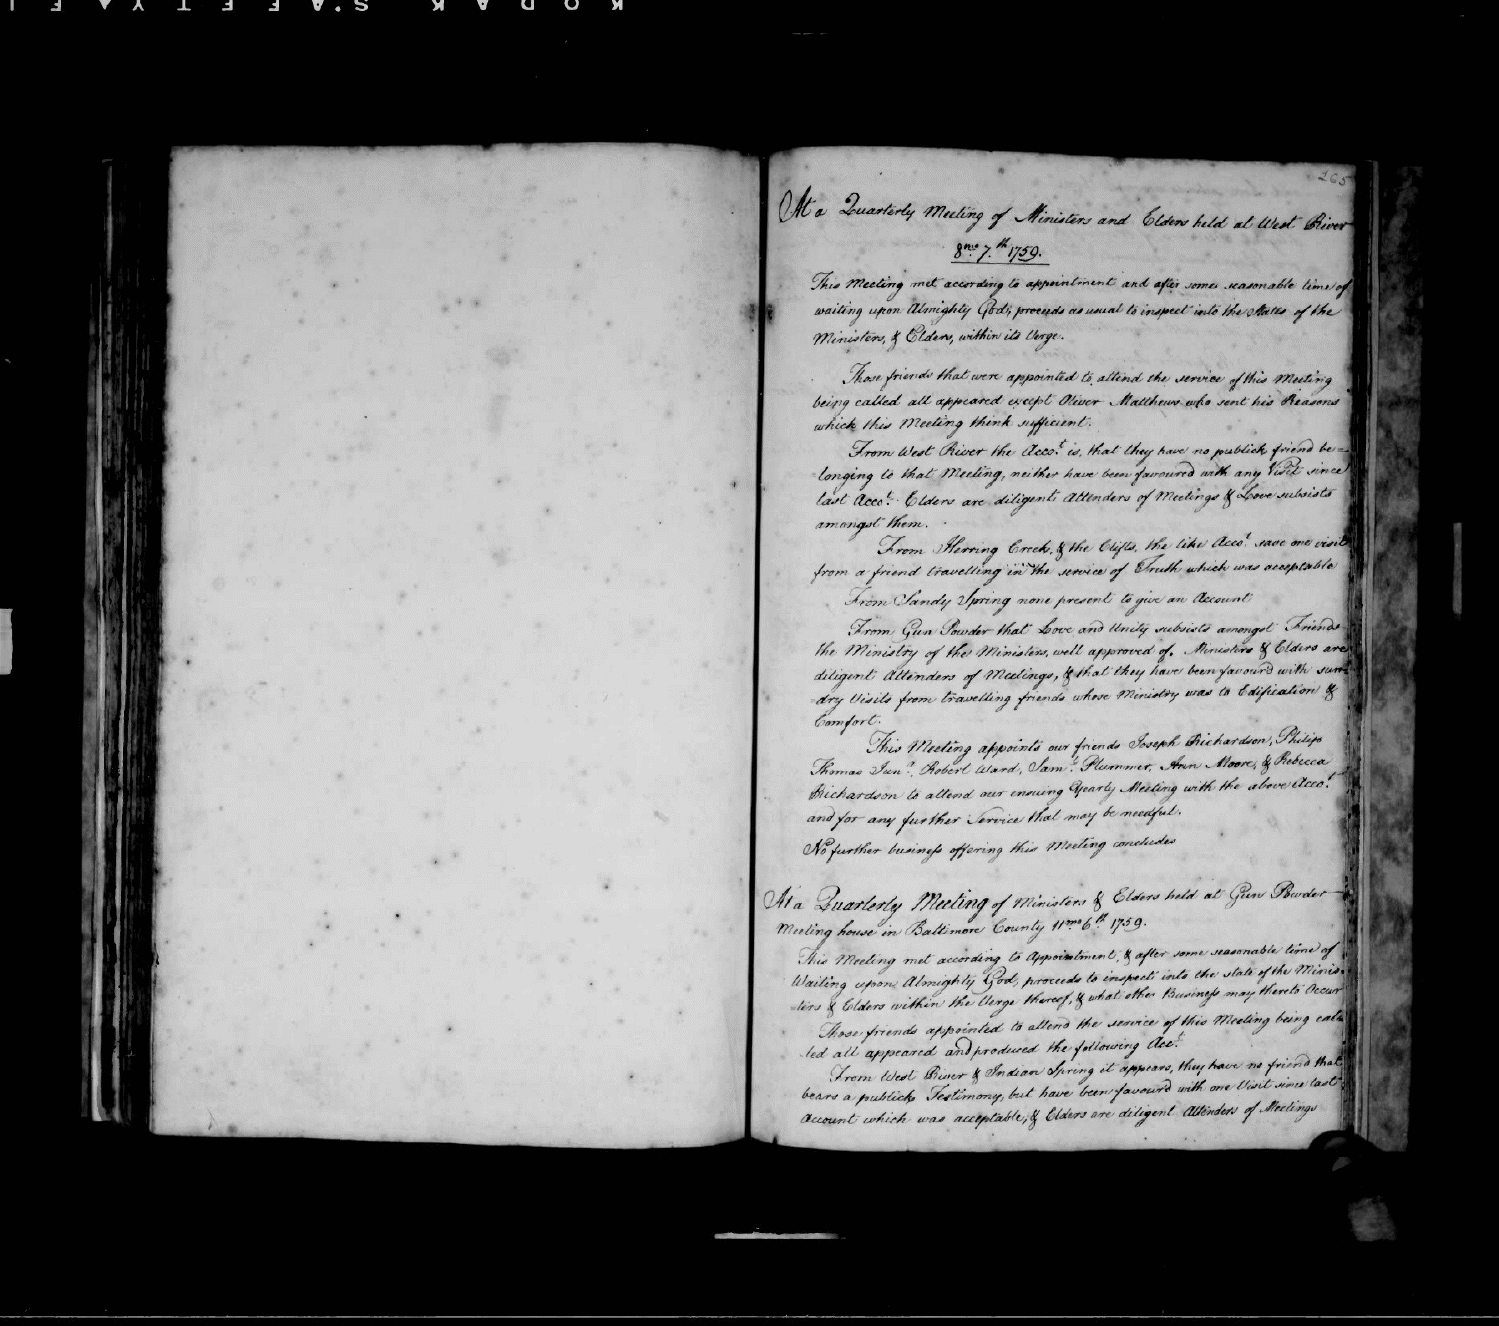 KODAK S.AFETY FI
265
At a Quarterly Meeting of Ministers and Elders held at West River
8mo 7th 1759.
This Meeting met according to appointment and after some seasonable time of
waiting upon Almighty God, proceeds as usual to inspect into the States of the
Ministers, & Elders, within its Verge.
Those friends that were appointed to attend the service of this Meeting
being called all appeared except Oliver Matthews who sent his Reasons
which this Meeting think sufficient.
From West River the Accot. is, that they have no publick friend be=
=longing to that Meeting, neither have been favoured with any Visit since
last Accot. Elders are diligent Attenders of Meetings & Love subsists
amongst them.
From Herring Creek, & the Clifts, the like Accot. save one visit
from a friend travelling in the service of Truth which was acceptable
From Sandy Spring none present to give an Account
From Gun Powder that Love and Unity subsists amongst Friends
the Ministry of the Ministers, well approved of. Ministers & Elders are
diligent Attenders of Meetings, & that they have been favourd with sun=
=dry Visits from travelling friends whose Ministry was to Edification &
Comfort.
This Meeting appoints our friends Joseph Richardson, Philip
Thomas Junr. Robert Ward, Saml. Plummer, Ann Moore, & Rebecca
Richardson to attend our ensuing Yearly Meeting with the above Accot.
and for any further Service that may be needful.
No further business offering this Meeting concludes
At a Quarterly Meeting of Ministers & Elders held at Gun Powder
Meeting house in Baltimore County 11mo 6th 1759.
This Meeting met according to Appointment, & after some seasonable time of
Waiting upon Almighty God, proceeds to inspect into the state of the Minis=
=ters & Elders within the Verge thereof, & what other Business may thereto Occur
Those friends appointed to attend the service of this Meeting being cal=
led all appeared and produced the following Acct.
From West River & Indian Spring it appears, they have no friend that
bears a publick Testimony, but have been favourd with one Visit since last
Account which was acceptable, & Elders are diligent Attenders of Meetings